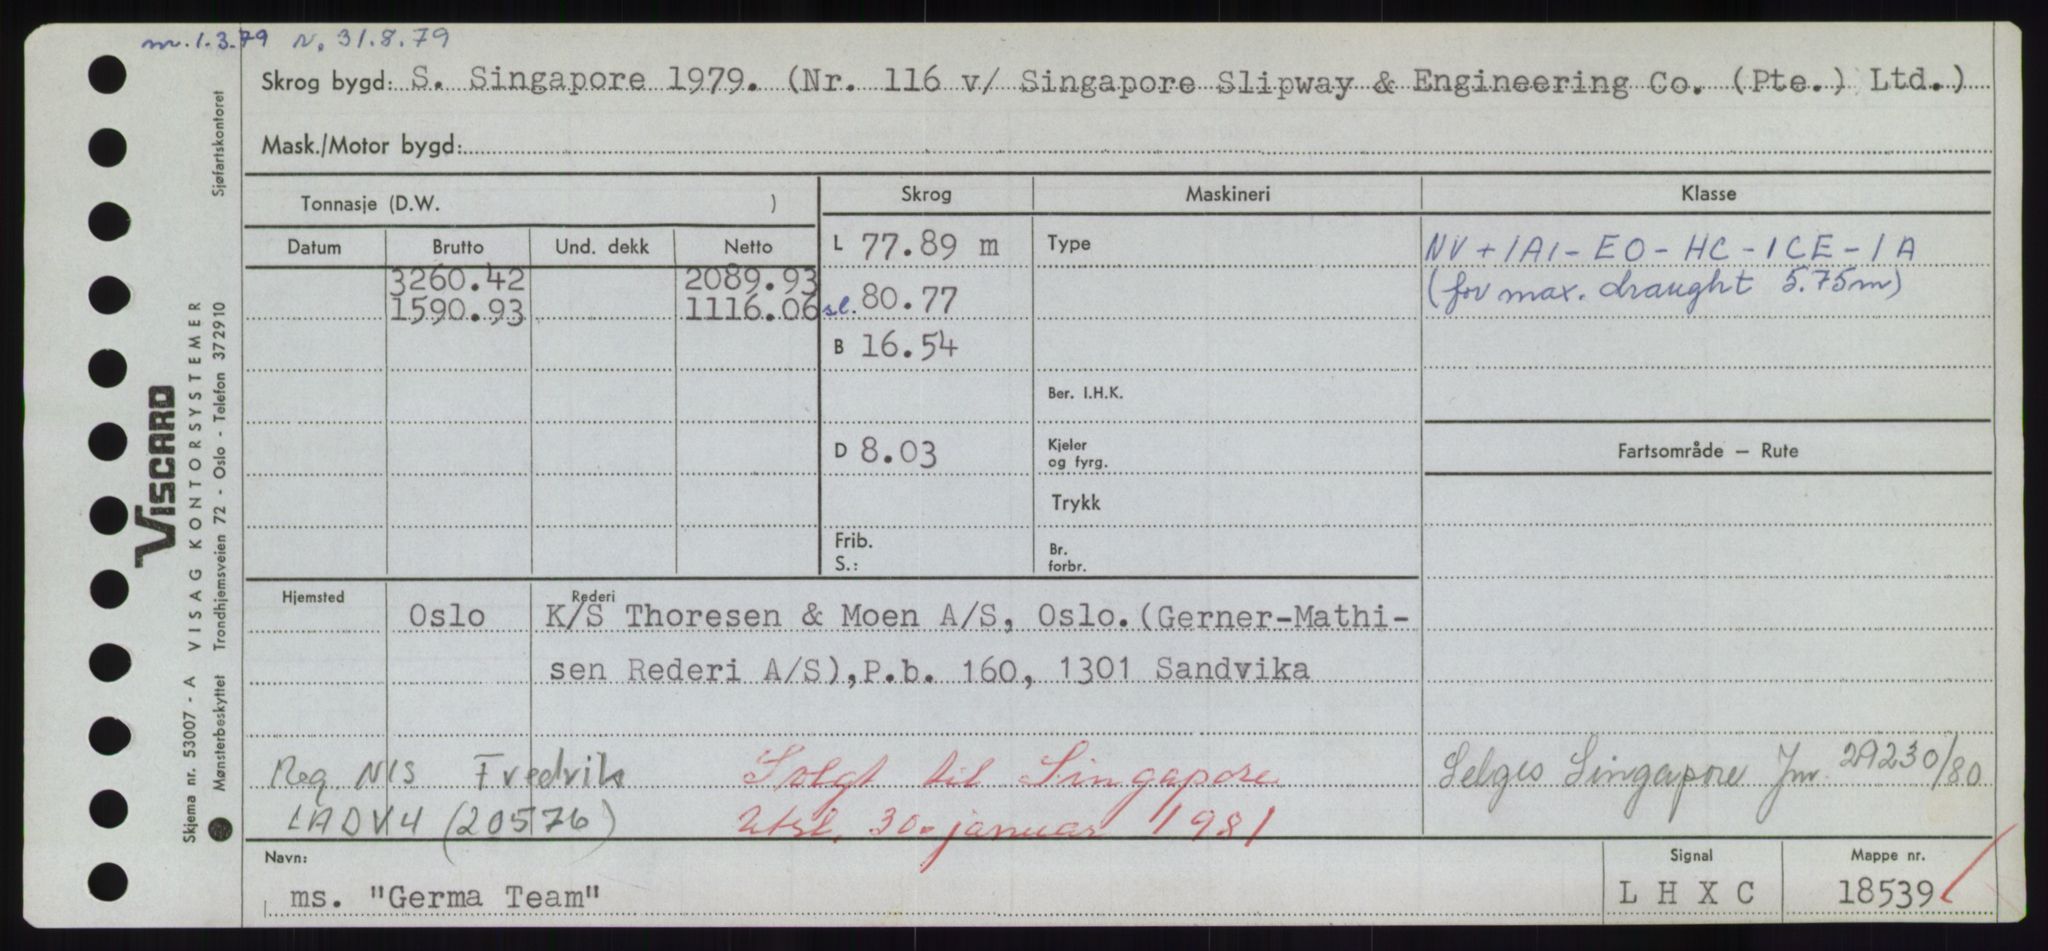 m. 1.3.79 N. 31.8.79
Skrog bygd: S. Singapore 1979. (Nr. 116 v/ Singapore Slipway & Engineering Co. (Pte.) Ltd.)
Mask./Motor bygd:
Tonnasje (D.W. )
Skrog
Maskineri
Klasse
Datum
Brutto
Und. dekk
Netto
L 77.89 m
Type
NV + 1A1 - EO - HC - ICE - 1A
3260.42 2089.93
(for max. draught 5.75m)
1590.93 1116.06
sl. 80.77
B 16.54
Ber. I.H.K.
D 8.03
Kjeler
og fyrg.
Fartsområde — Rute
Trykk
Frib.
S.:
Br.
forbr.
Hjemsted
Oslo
Rederi
K/S Thoresen & Moen A/S, Oslo. (Gerner-Mathi-
sen Rederi A/S), P.b. 160, 1301 Sandvika
Reg. NIS Fredvik
LADV4 (20576)
Solgt til Singapore
Utsl. 30. januar 1981
Selges Singapore Jnr. 29230/80
Navn:
ms. "Germa Team"
Signal
L H X C
Mappe nr.
18539
VISCARD
Skjema nr. 53007 - A VISAG KONTORSYSTEMER
Mønsterbeskyttet Trondhjemsveien 72 - Oslo - Telefon 372910 Sjøfartskontoret